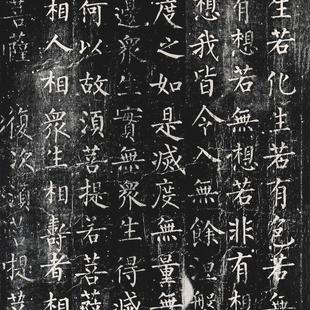 生若化生若有色若無
有想若無想若非有想
想我皆令入無餘涅槃
度之如是滅度無量無
邊眾生實無眾生得滅
何以故須菩提若菩薩
相人相眾生相壽者相
菩薩　復次須菩提菩